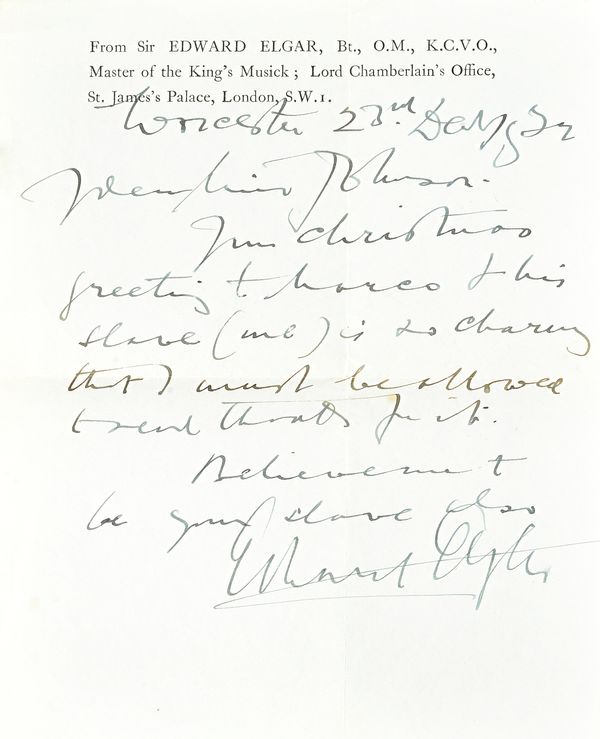 From Sir EDWARD ELGAR, Bt., O.M., K.C.V.O.,
Master of the King's Musick ; Lord Chamberlain's Office,
St. James's Palace, London, S.W.1.
Worcester 23rd
Johnson.
Your Christmas
greeting to Marco & his
slave (me) is so charming
that I must be allowed
to send thanks for it.
Believe me to
be your slave also
Edward Elgar